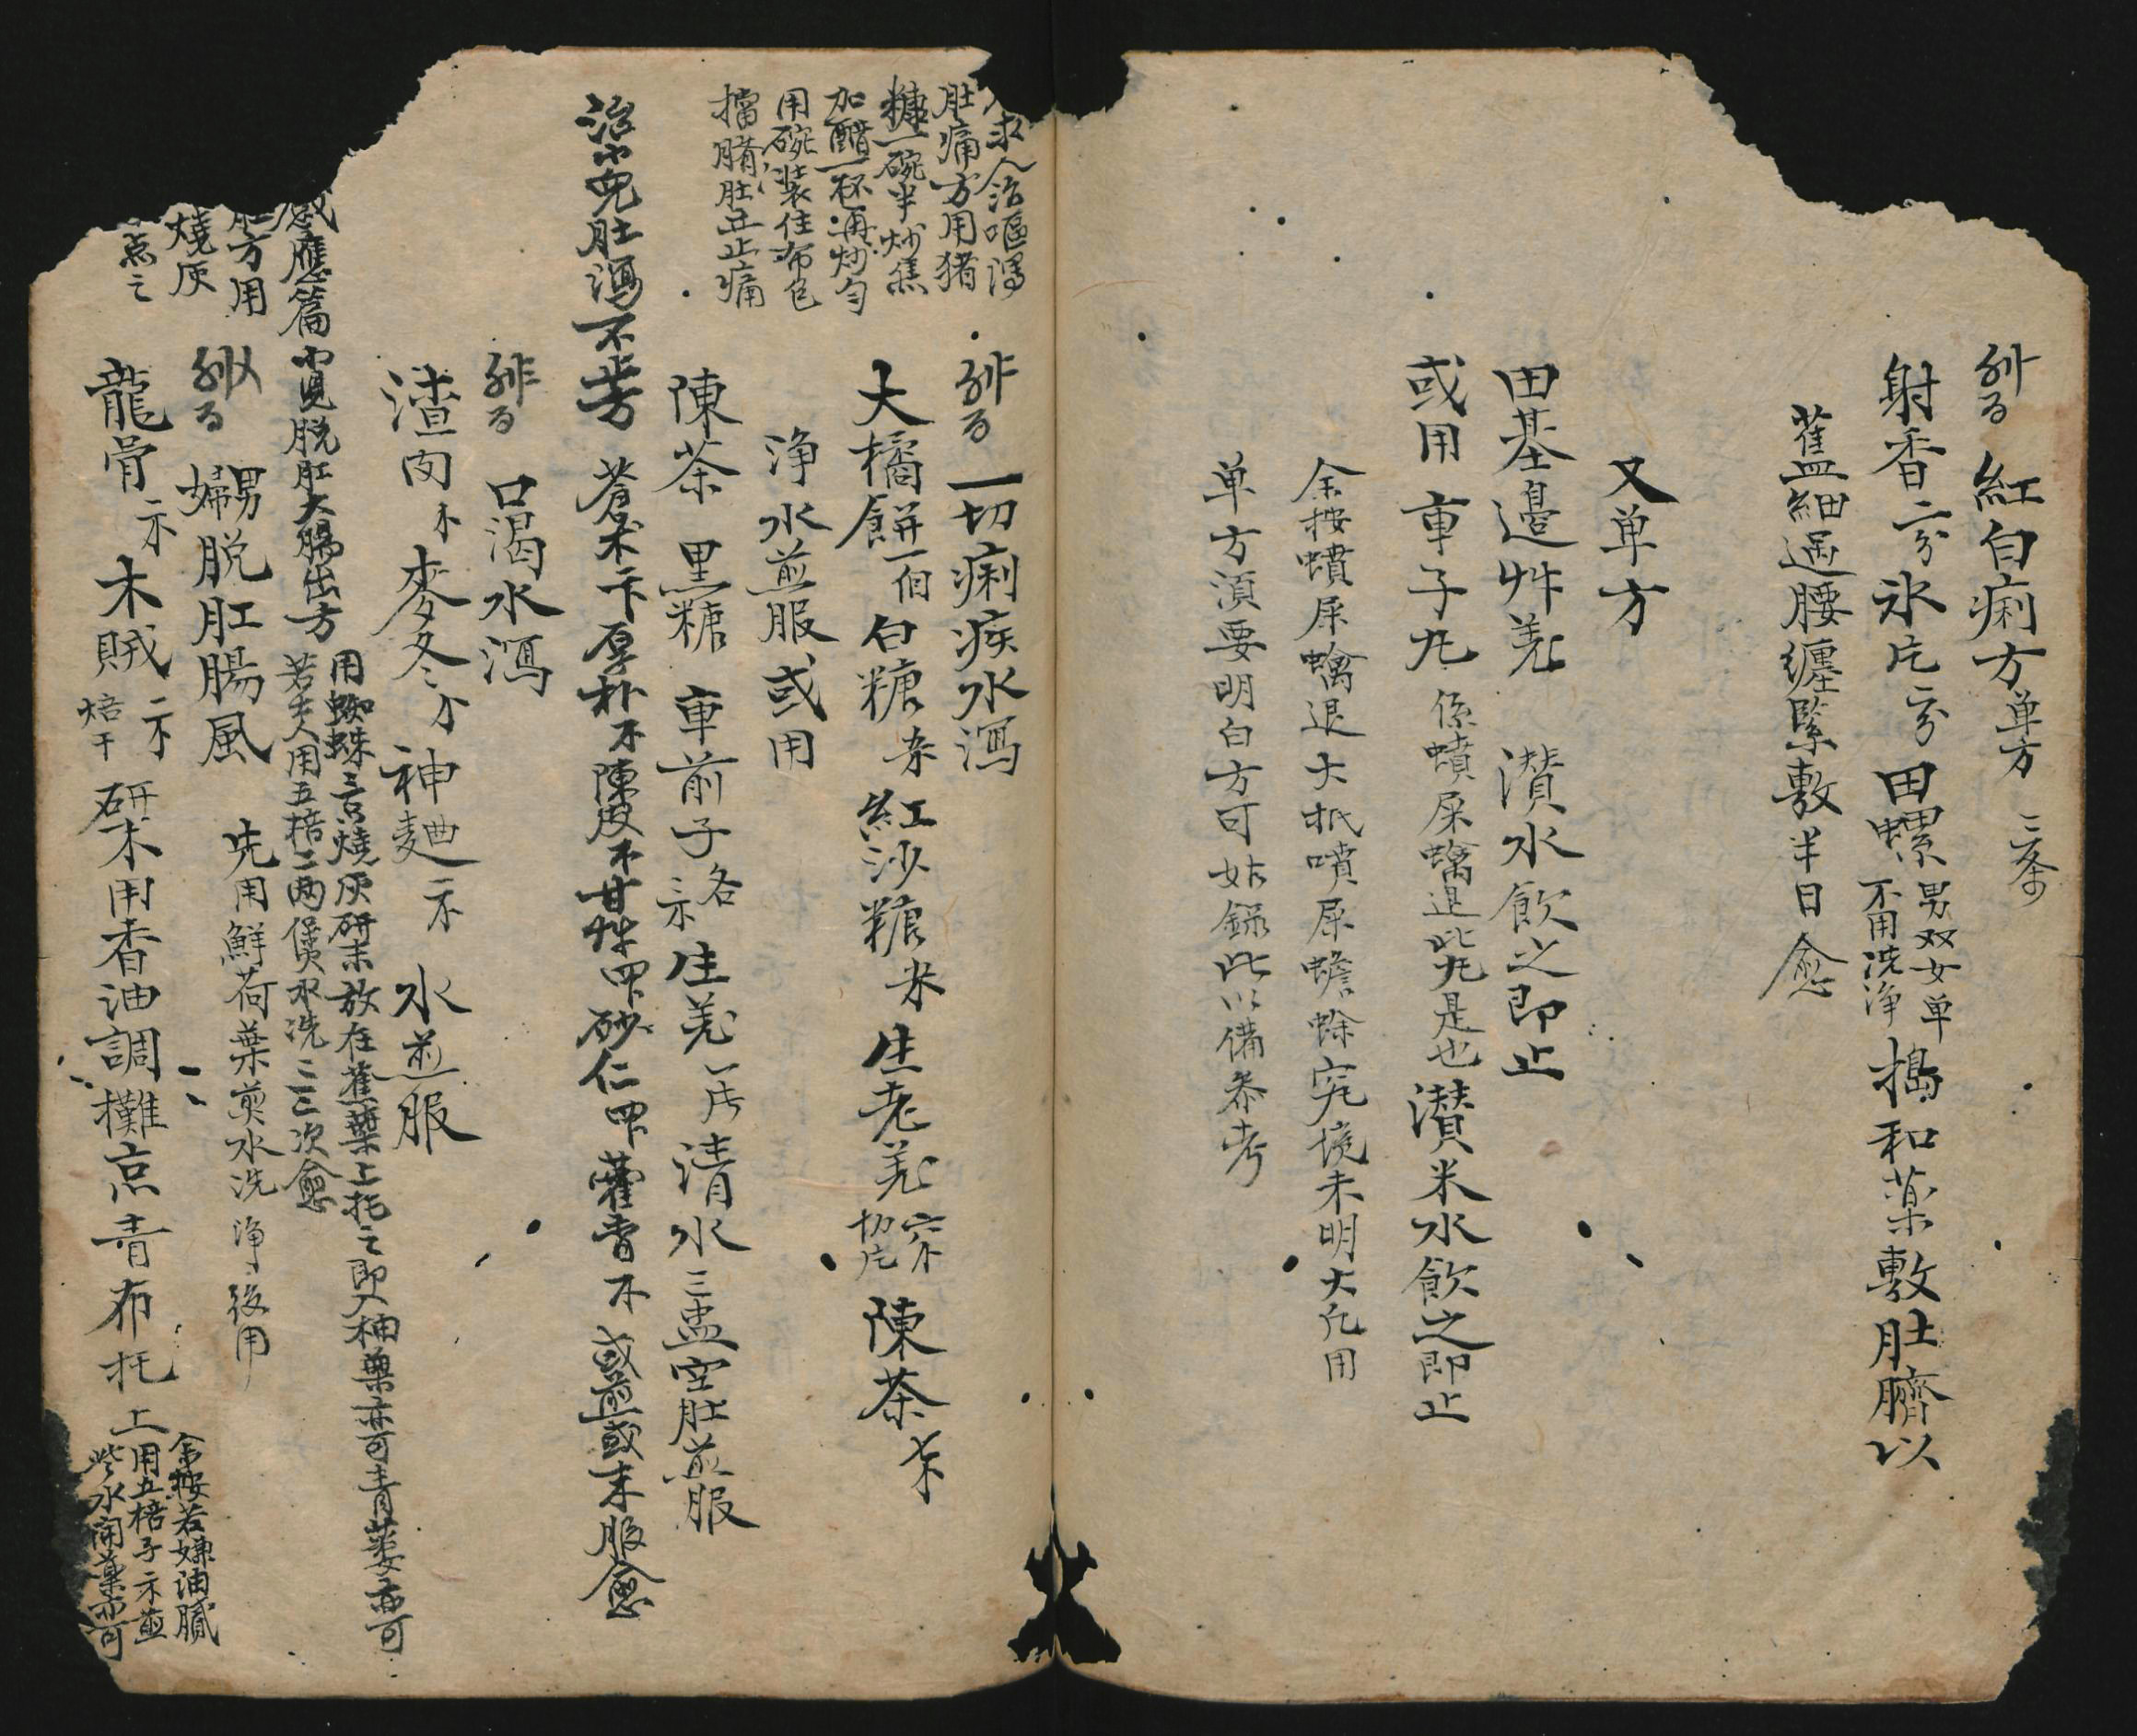 紅白痢方单方
射香二分氷片二分田螺男双女单不用洗淨搗和薬敷肚臍以
蓋細過腰纏緊敷半日愈
又单方
田基邉艸羌 濽水飲之即止
或用車子九係蟥屎蠄退此九是也濽米水飲之即止
余按蟥屎蠄退大抵噴屎蟾蜍究境未明大凡用
单方須要明白方可姑録此以備参考
求人治嘔瀉
肚痛方用猪
糠一碗半炒焦
加醋一杯再炒匀
用碗装住布包
擋臍肚立止痛
一切痢疾水瀉
大橘餅一个白糖 紅沙糖 生老羌切片陳茶
淨水煎服或用
陳茶 黒糖 車前子各 生羌一片清水三盅空肚煎服
治小兒肚瀉不止方 蒼术 厚朴 陳皮 甘艸 砂仁 藿香 或煎或末服愈
口渴水瀉
渣肉 麥冬 神麯 水煎服
感應篇小兒脱肛大腸出方 用蜘蛛三只燒灰研末放在蕉葉上托之即入柚葉亦可青葽亦可
若大人用五棓二两煲水洗二三次愈
肚方用
燒灰
点之
男婦脱肛腸風 先用鮮荷葉煎水洗淨後用
龍骨 木賊 焙干 研末用香油調攤点青布托上
余按若嫌油膩
用五棓子 煎
些水開薬亦可